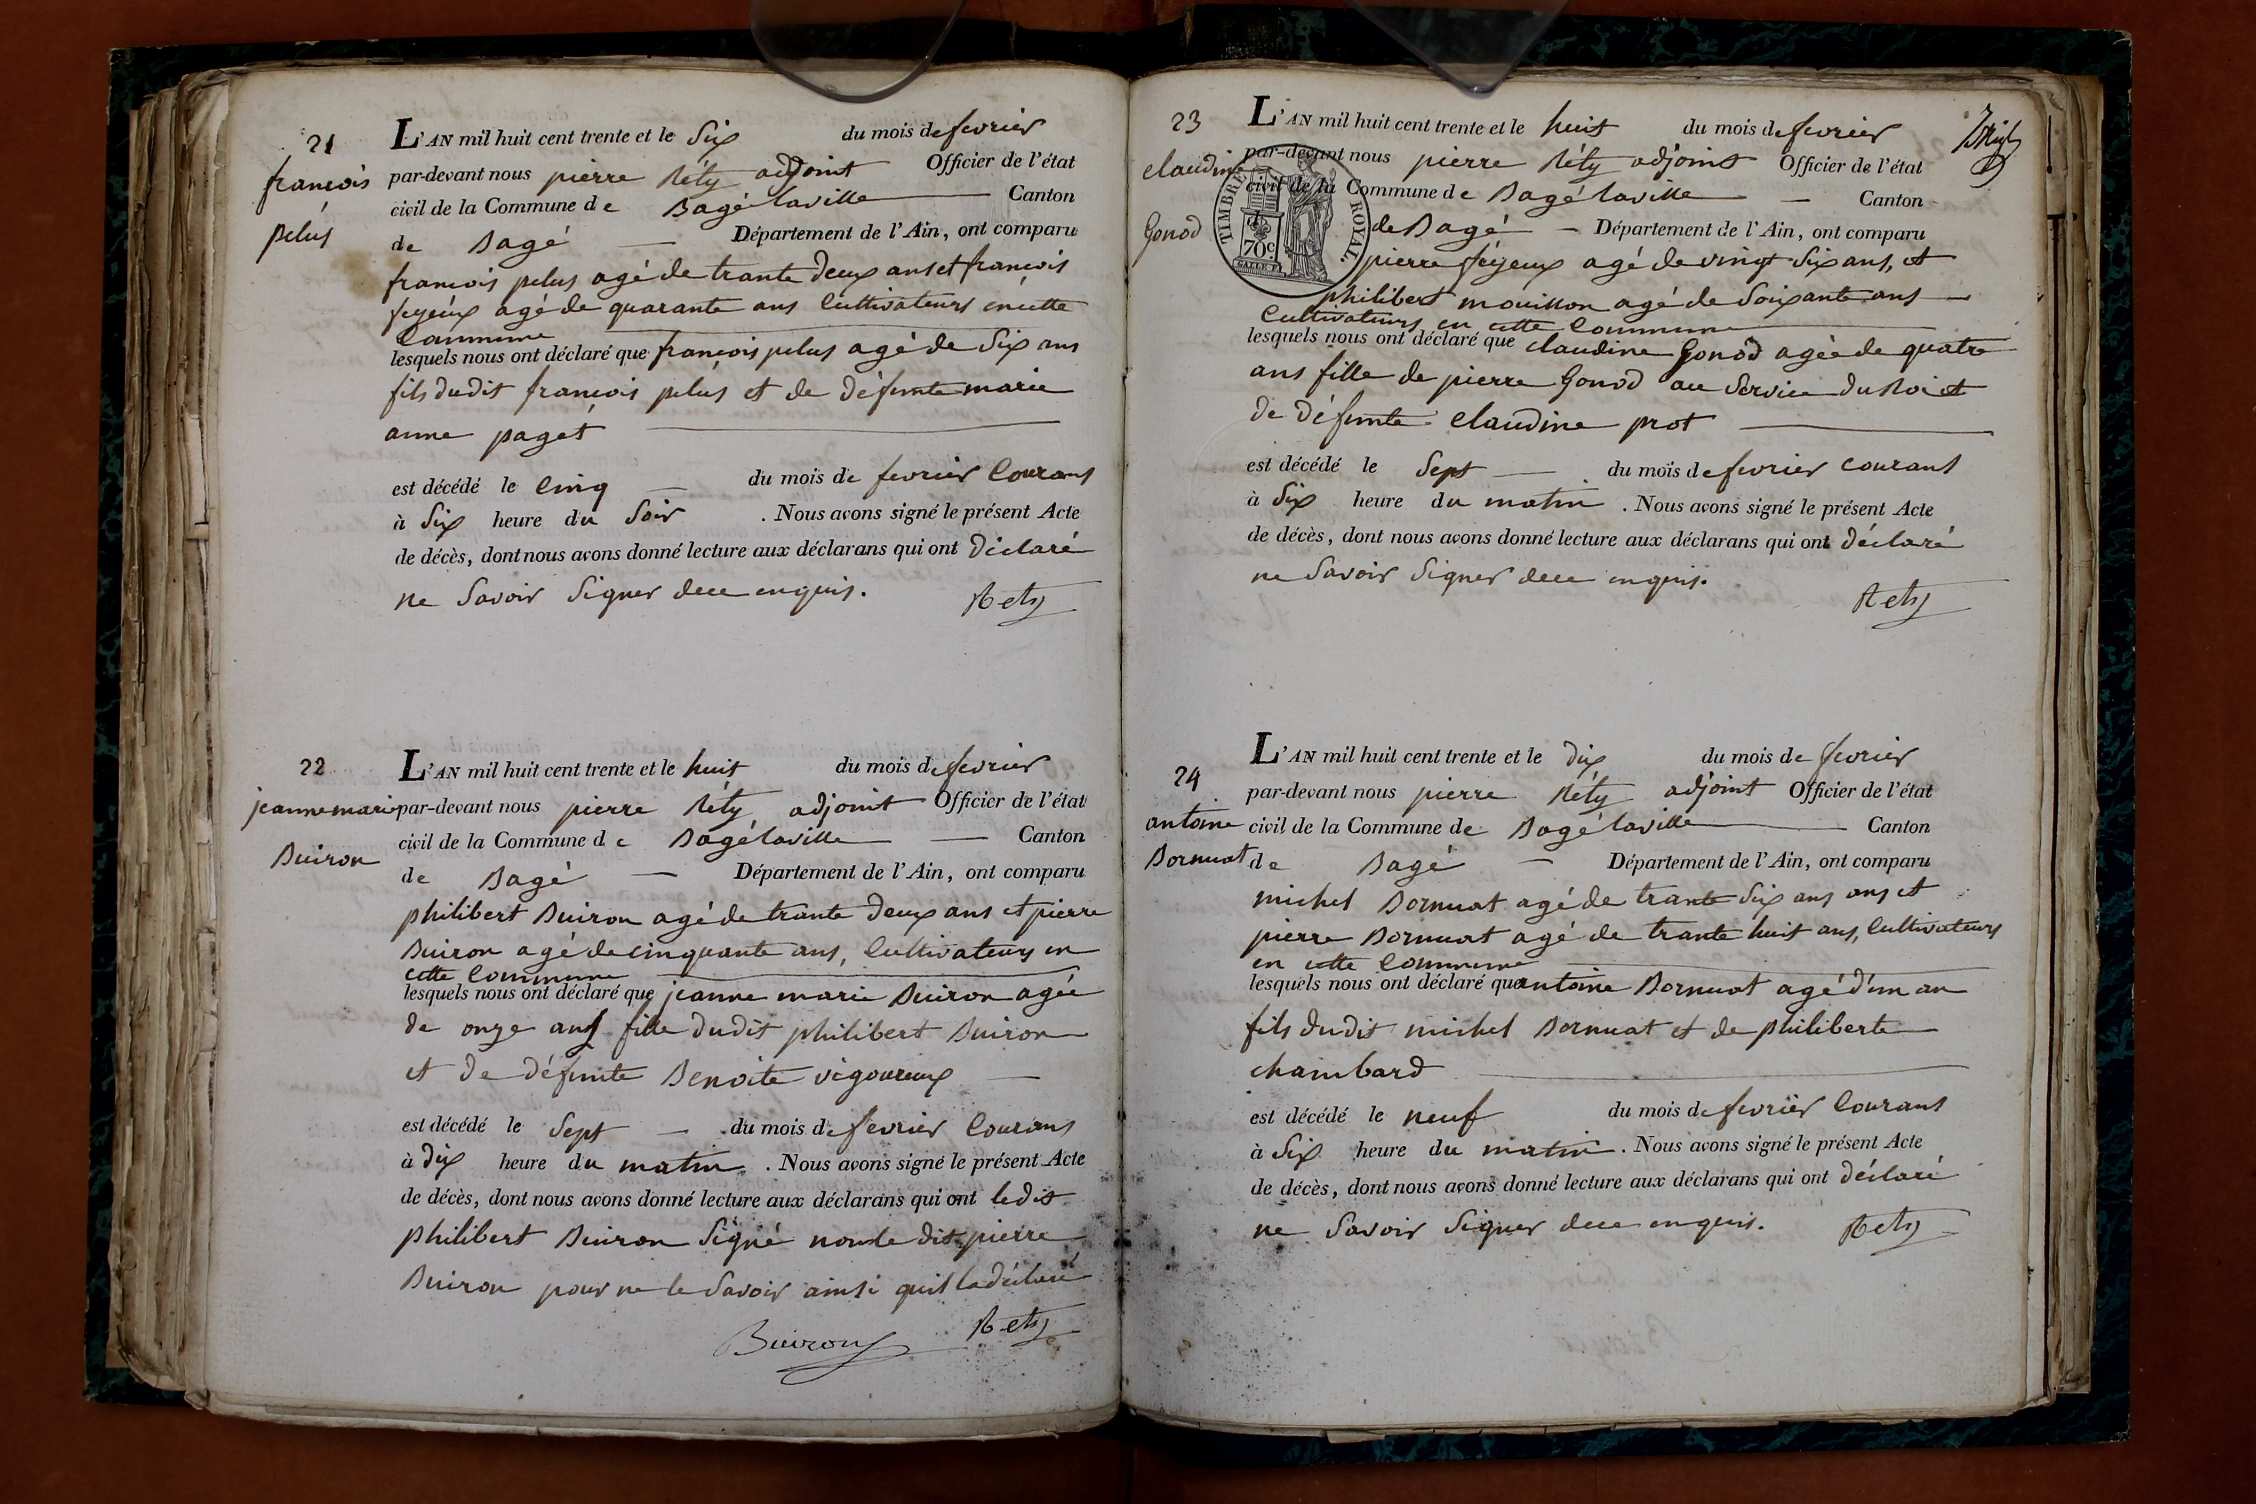 21
françois
pelus
L'AN mil huit cent trente et le Six du mois de fevrier
par-devant nous pierre Réty adjoint Officier de l'état
civil de la Commune de Bagé laville Canton
de Bagé — Département de l'Ain, ont comparu
francois pelus agé de trante deux ans et francois
feyéux agé de quarante ans Cultivateurs en cette
Commune
lesquels nous ont déclaré que françois pelus agé de Six ans
fils dudit francois pelus et de défunte marie
anne paget
est décédé le Cinq — du mois de fevrier Courant
à Six heure du Soir . Nous avons signé le présent Acte
de décès, dont nous avons donné lecture aux déclarans qui ont déclaré
ne Savoir Signer dece enquis.
Rety
22
jeanne marie
Buiron
L'AN mil huit cent trente et le huit du mois de fevrier
par-devant nous pierre Réty adjoint Officier de l'état
civil de la Commune de Bagé laville — Canton
de Bagé — Département de l'Ain, ont comparu
philibert Buiron agé de trante deux ans et pierre
Buiron agé de cinquante ans, Cultivateurs en
cette Commune
lesquels nous ont déclaré que jeanne marie Buiron agée
de onze ans fille dudit philibert Buiron
et de défunte Benoite vigoureux —
est décédé le Sept — du mois de fevrier Courant
à dix heure du matin . Nous avons signé le présent Acte
de décès, dont nous avons donné lecture aux déclarans qui ont ledit
philibert Buiron Signé non le dit pierre
Buiron pour ne le Savoir ainsi quil la déclaré
Buiron Rety
23
claudine
Gonod
L'AN mil huit cent trente et le huit du mois de fevrier
par-devant nous pierre Réty adjoint Officier de l'état
civil de la Commune de Bagé laville — Canton
de Bagé — Département de l'Ain, ont comparu
TIMBRE ROYAL
70c
pierre féyeux agé de vingt Six ans, et
philibert mouisson agé de Soixante ans
Cultivateurs en cette Commune
lesquels nous ont déclaré que claudine Gonod agée de quatre
ans fille de pierre Gonod au Service du Roi et
de défunte claudine prot
est décédé le Sept — du mois de fevrier courant
à Six heure du matin . Nous avons signé le présent Acte
de décès, dont nous avons donné lecture aux déclarans qui ont déclaré
ne Savoir Signer dece enquis.
Rety
24
antoine
Bornuat
L'AN mil huit cent trente et le dix du mois de fevrier
par-devant nous pierre Réty adjoint Officier de l'état
civil de la Commune de Bagé laville Canton
de Bagé — Département de l'Ain, ont comparu
michel Bornuat agé de trante Six ans ans et
pierre Bornuat agé de trante huit ans, Cultivateurs
en cette Commune
lesquels nous ont déclaré que antoine Bornuat agé d'un an
fils dudit michel Bornuat et de philiberte
chambard
est décédé le neuf du mois de fevrier Courant
à Six heure du matin . Nous avons signé le présent Acte
de décès, dont nous avons donné lecture aux déclarans qui ont déclaré
ne Savoir Signer dece enquis.
Rety